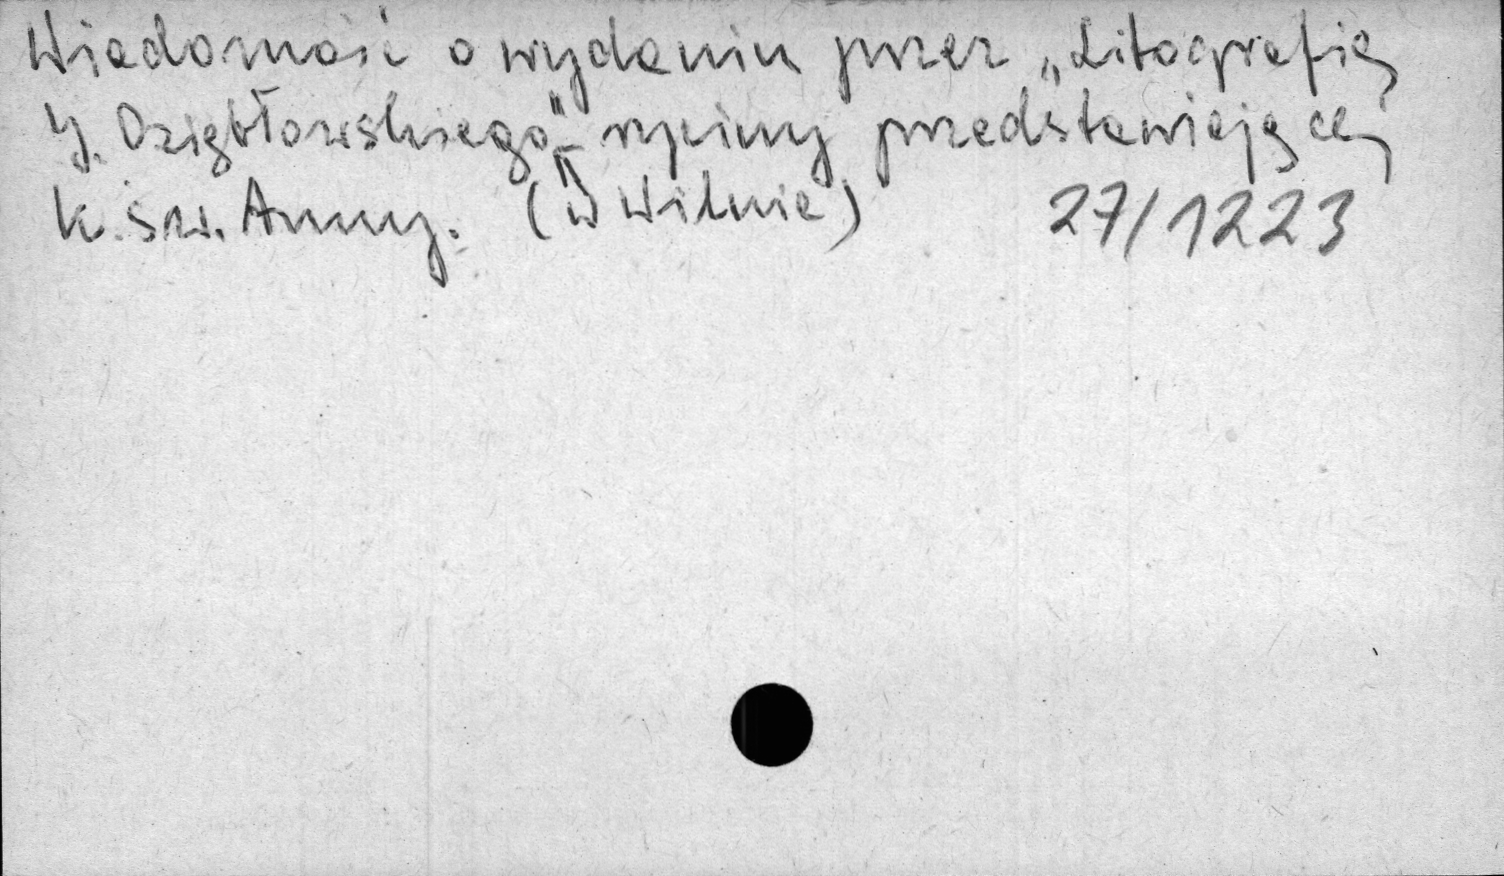 Wiadomość o wydaniu przez „Litografię
J. Oziębłowskiego" ryciny przedstawiającej
k. św. Anny. (W Wilnie) 27/1223